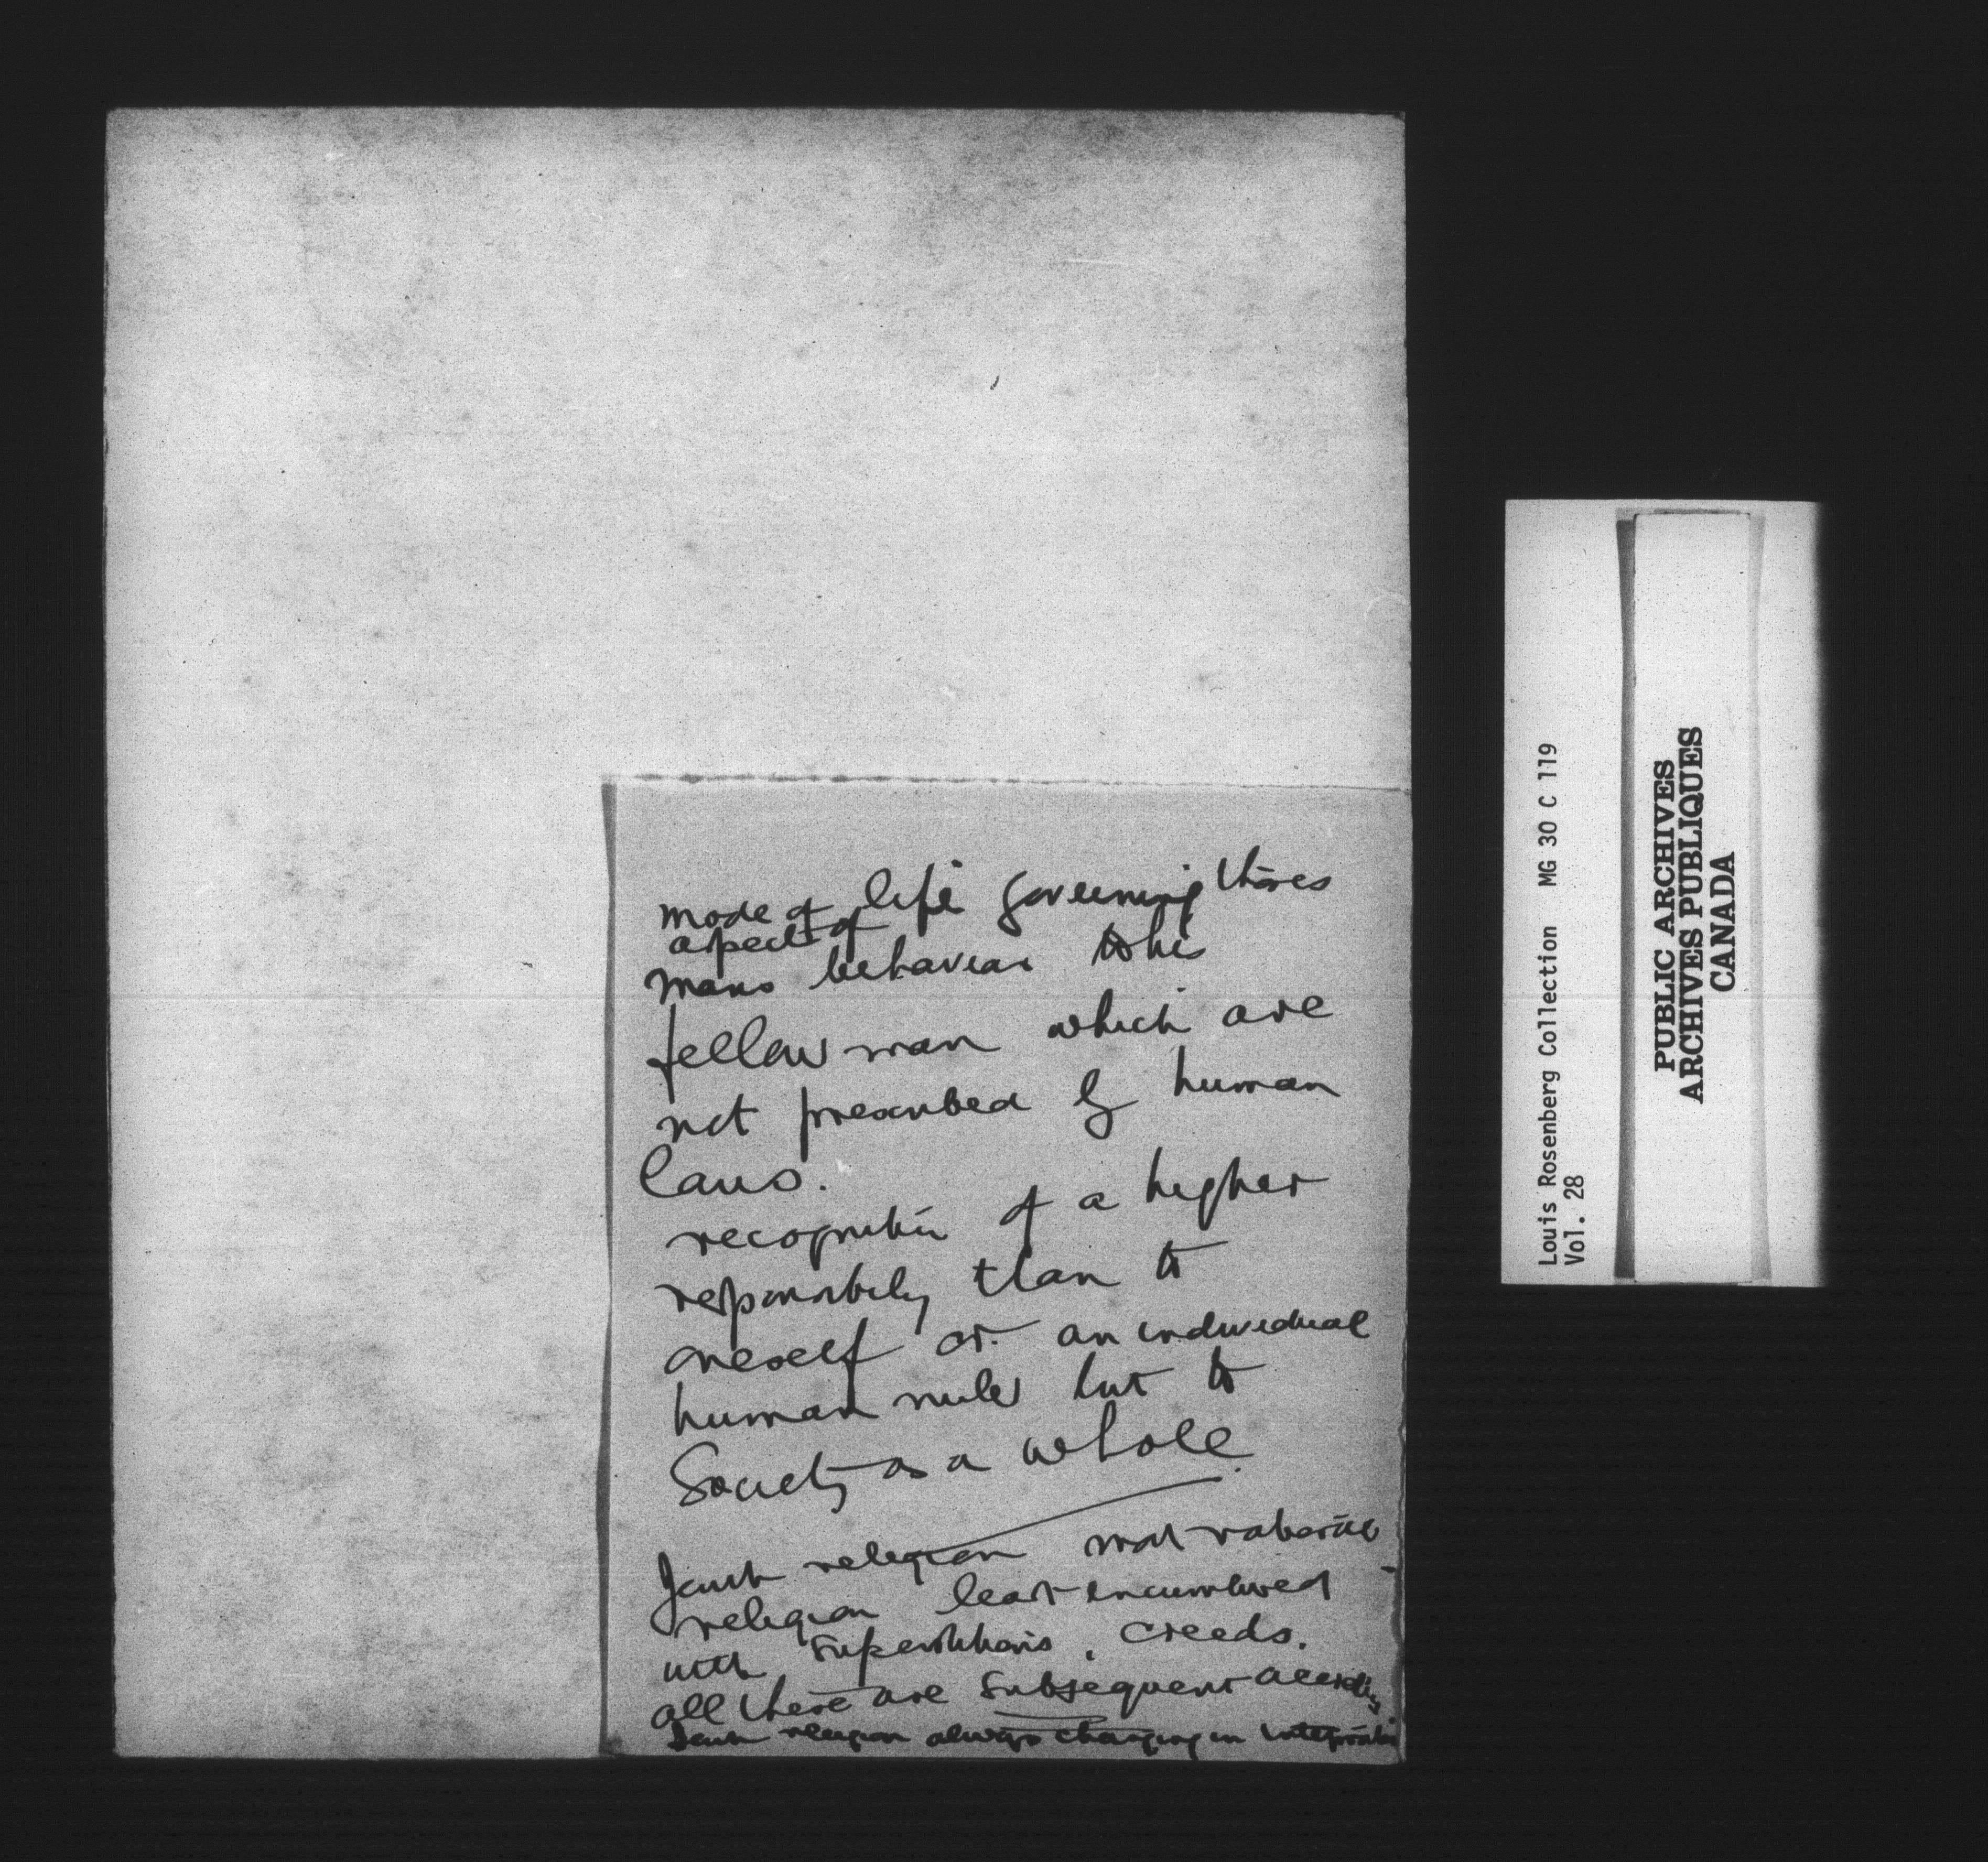 mode of life governing those
aspects of
mans behaviour to his
fellow man which are
not prescribed by human
laws.
recognition of a higher
responsibility than to
oneself or an individual
human ruler but to
Society as a whole.
Jewish religion most rational
religion least encumbered
with superstitions, creeds.
all these are subsequent
Jewish religion always changing in interpretation
Louis Rosenberg Collection MG 30 C 119
Vol. 28
PUBLIC ARCHIVES
ARCHIVES PUBLIQUES
CANADA